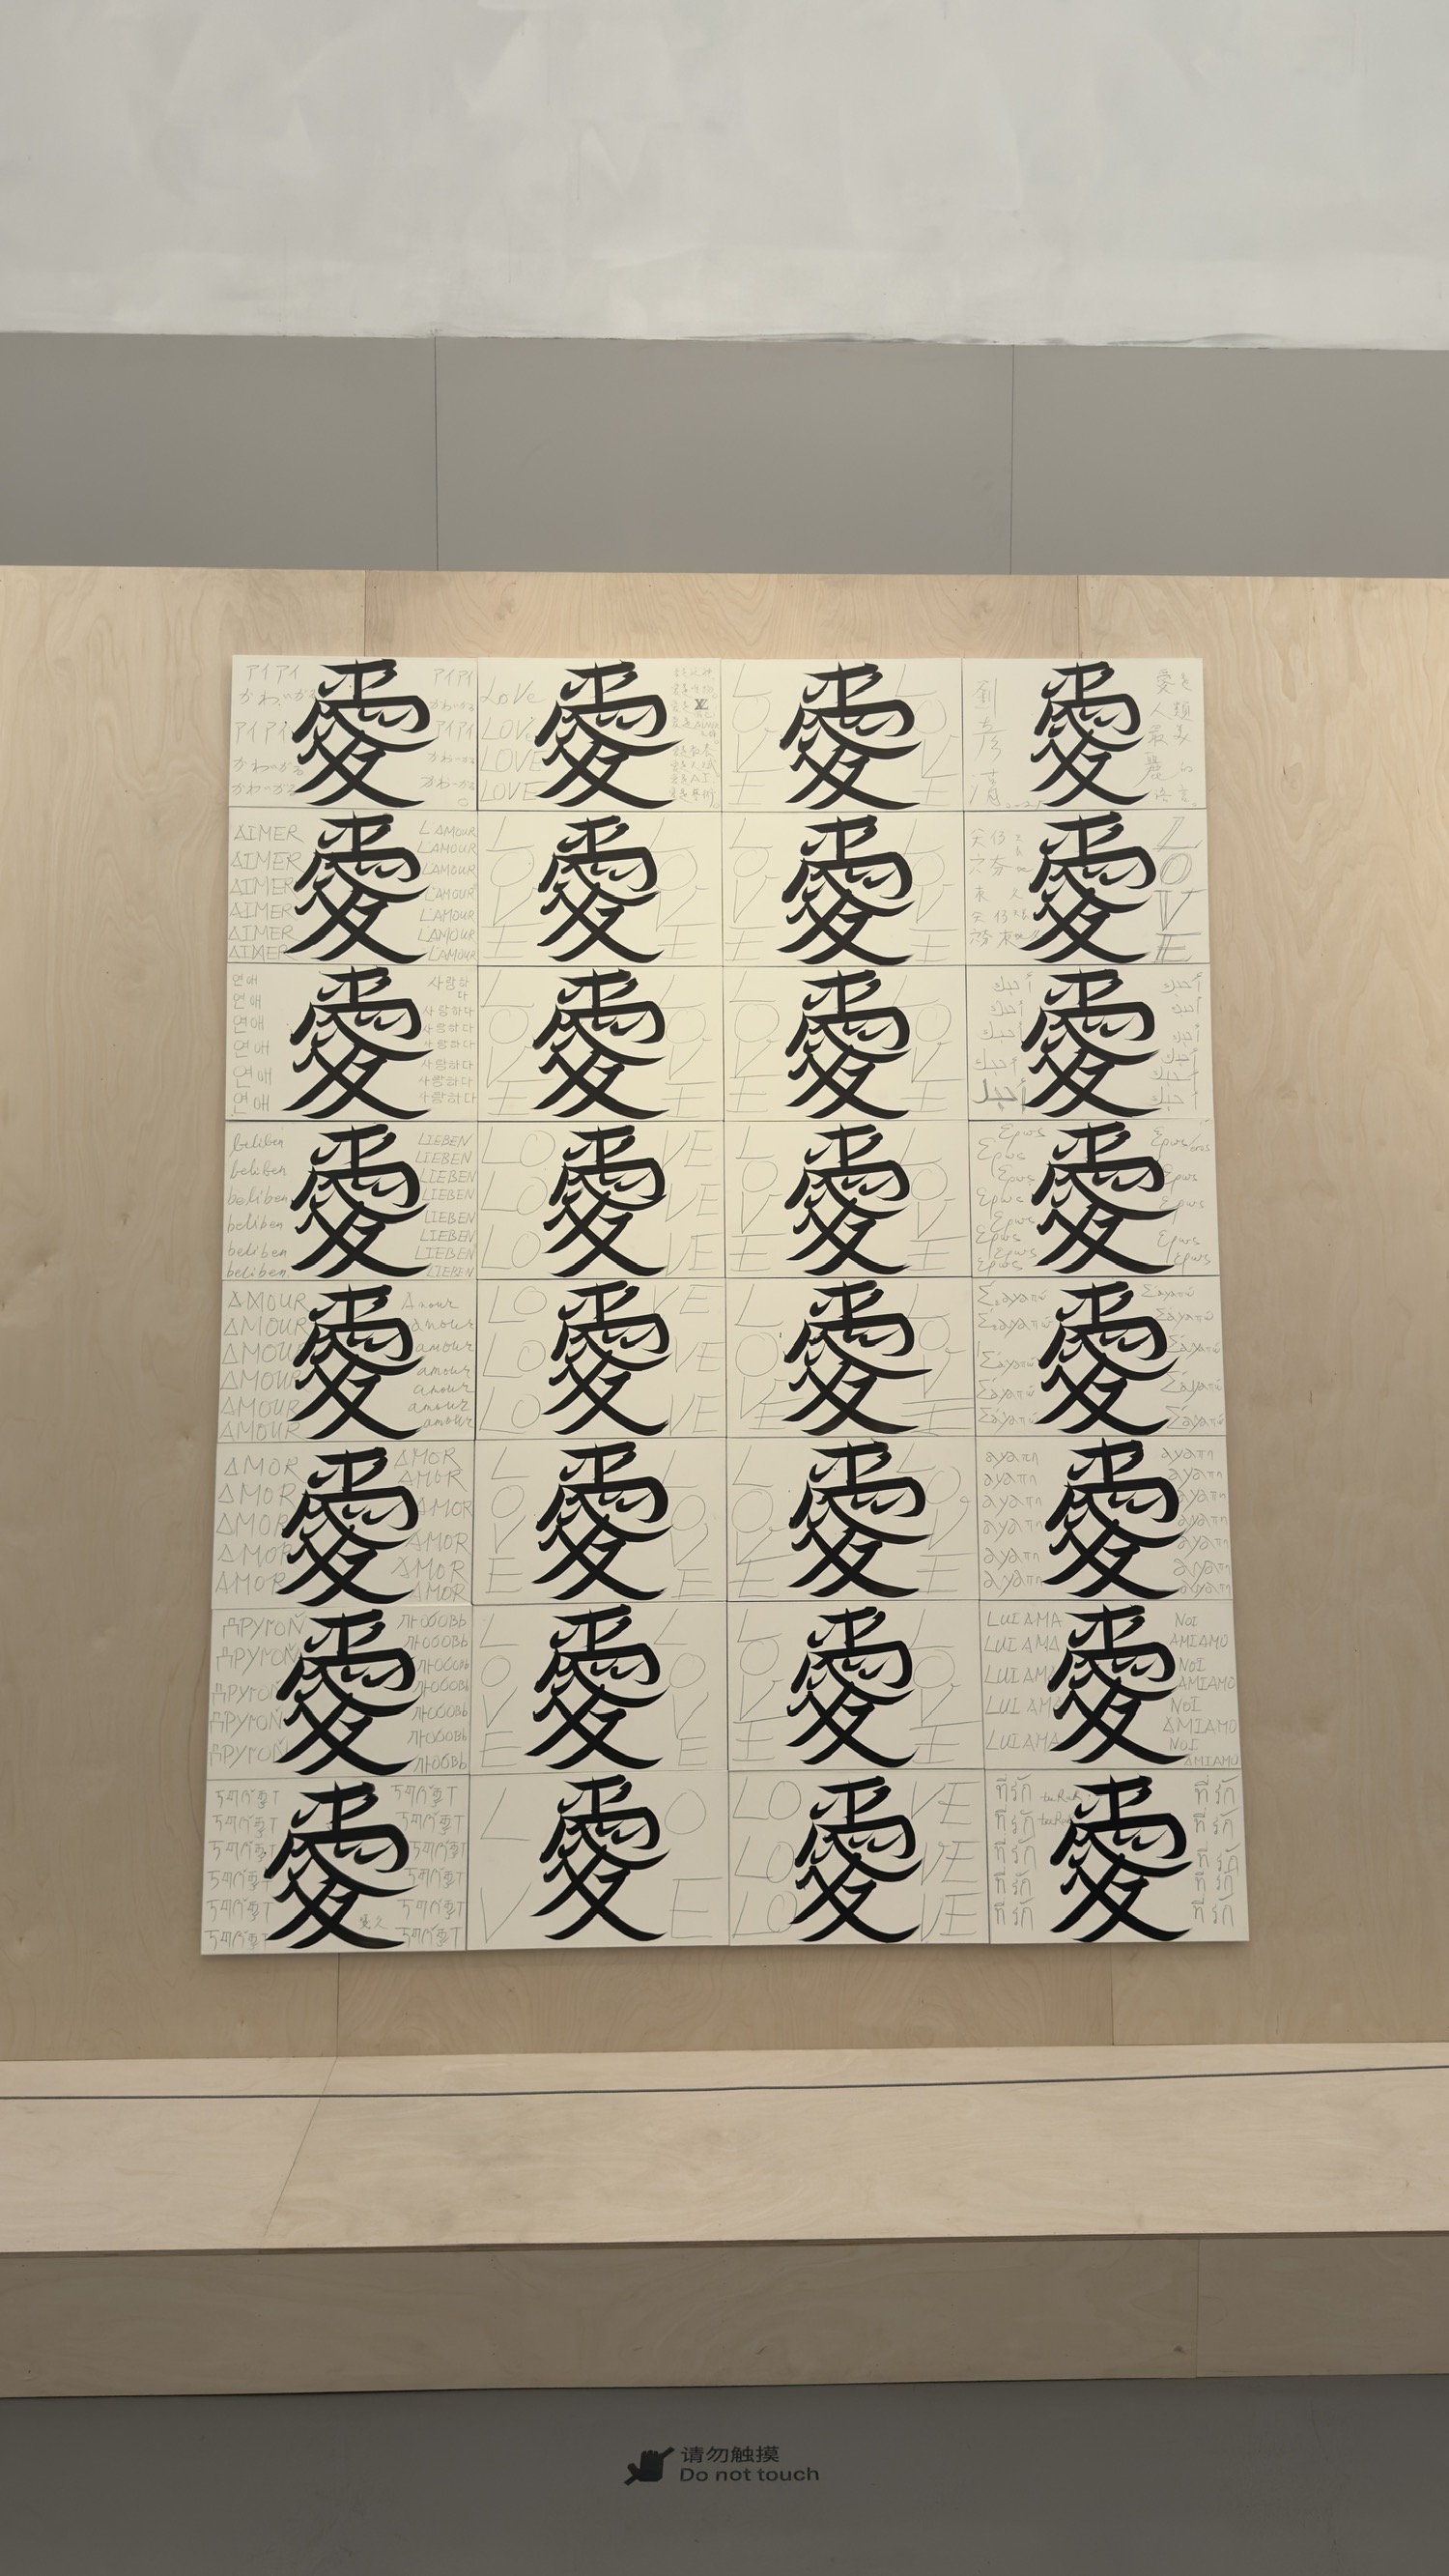 アイアイ
かわいがる
アイアイ
かわいがる
かわいがる
愛
アイアイ
かわいがる
アイアイ
かわいがる
かわいがる
LoVe
LOVE
LOVE
LOVE
愛
L
O
V
E
愛
L
O
V
E
劉
彥
愛
愛是
人類
最美
麗的
語言。
AIMER
AIMER
AIMER
AIMER
AIMER
AIMER
愛
L'AMOUR
L'AMOUR
L'AMOUR
L'AMOUR
L'AMOUR
L'AMOUR
L'AMOUR
L
O
V
E
愛
L
O
V
E
L
O
V
E
愛
L
O
V
E
愛
L
O
V
E
연애
연애
연애
연애
연애
연애
愛
사랑하
다
사랑하다
사랑하다
사랑하다
사랑하다
사랑하다
사랑하다
L
O
V
E
愛
L
O
V
E
L
O
V
E
愛
L
O
V
E
أحبك
أحبك
أحبك
أحبك
أحبك
愛
أحبك
أحبك
أحبك
أحبك
أحبك
أحبك
beliben
beliben
beliben
beliben
beliben
beliben
愛
LIEBEN
LIEBEN
LIEBEN
LIEBEN
LIEBEN
LIEBEN
LIEBEN
LIEBEN
LO VE
LO VE
LO VE
愛
L
O
V
E
愛
L
O
V
E
Έρως
Έρως
Έρως
Έρως
Έρως
Έρως
Έρως
愛
Έρως/eros
Έρως
Έρως
Έρως
Έρως
AMOUR
AMOUR
AMOUR
AMOUR
AMOUR
AMOUR
愛
Amour
amour
amour
amour
amour
amour
amour
LO VE
LO VE
LO VE
愛
L
O
V
E
愛
L
O
V
E
Σ'αγαπώ
Σ'αγαπώ
Σ'αγαπώ
Σ'αγαπώ
Σ'αγαπώ
愛
Σ'αγαπώ
Σ'αγαπώ
Σ'αγαπώ
Σ'αγαπώ
Σ'αγαπώ
AMOR
AMOR
AMOR
AMOR
AMOR
愛
AMOR
AMOR
AMOR
AMOR
AMOR
AMOR
L
O
V
E
愛
L
O
V
E
L
O
V
E
愛
L
O
V
E
αγαπη
αγαπη
αγαπη
αγαπη
αγαπη
αγαπη
愛
αγαπη
αγαπη
αγαπη
αγαπη
αγαπη
αγαπη
αγαπη
ДРУГОЙ
ДРУГОЙ
ДРУГОЙ
ДРУГОЙ
ДРУГОЙ
愛
ЛЮБОВЬ
ЛЮБОВЬ
ЛЮБОВЬ
ЛЮБОВЬ
ЛЮБОВЬ
ЛЮБОВЬ
ЛЮБОВЬ
L
O
V
E
愛
L
O
V
E
L
O
V
E
愛
L
O
V
E
LUI AMA
LUI AMA
LUI AMA
LUI AMA
LUI AMA
愛
NOI
AMIAMO
NOI
AMIAMO
NOI
AMIAMO
NOI
AMIAMO
愛
L O
V E
愛
LO VE
LO VE
LO VE
愛
ที่รัก
ที่รัก
ที่รัก
ที่รัก
ที่รัก
愛
ที่รัก
ที่รัก
ที่รัก
ที่รัก
ที่รัก
请勿触摸
Do not touch